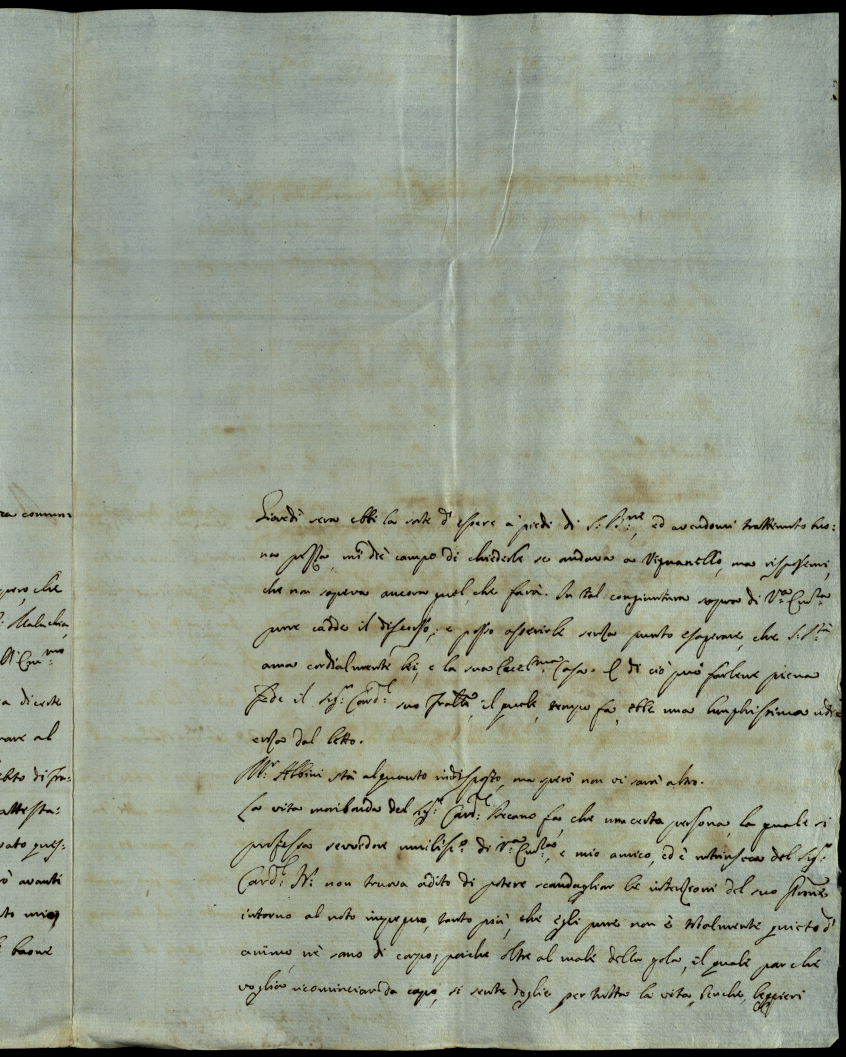 ra commu=
pero, che
Malachia
a di certe
rare al
ebto di fra=
attesta=
vato ques=
ò avanti
to mio,
baone
Giovedì sera ebbi la sorte d'essere a' piedi di S. S.ne, ed avendomi trattenuto buo=
na pezza, mi diè campo di chiederle se andava a Vignanello, ma risposemi,
che non sapeva ancora quel che farà. In tal congiuntura sopra di V.ra
pure cadde il discorso, e posso asserirle senza punto esagerare, che S. S.tà
ama cordialmente lei, e la sua Eccel.ma Casa. E di ciò può farlene piena
fede il Sig.r Card.l suo fratello, il quale, tempo fa, ebbe una lunghissima udi=
enza dal letto.
M.r Albini stà alquanto indisposto, ma spero non vi sarà altro.
La vita moribonda del Sig.r Card.l Decano fa che una certa persona, la quale si
professa servidore umiliss.o di V.ra, e mio amico, ed è intrinseca del Sig.r
Card.l N: non truova adito di potere scandagliar le intenzioni del suo Prone
intorno al noto impegno, tanto più, che egli pure non è totalmente quieto d'
animo, nè sano di corpo, poiche oltre al male della gola, il quale par che
voglia ricominciar da capo, si sente doglie per tutta la vita, benche leggieri